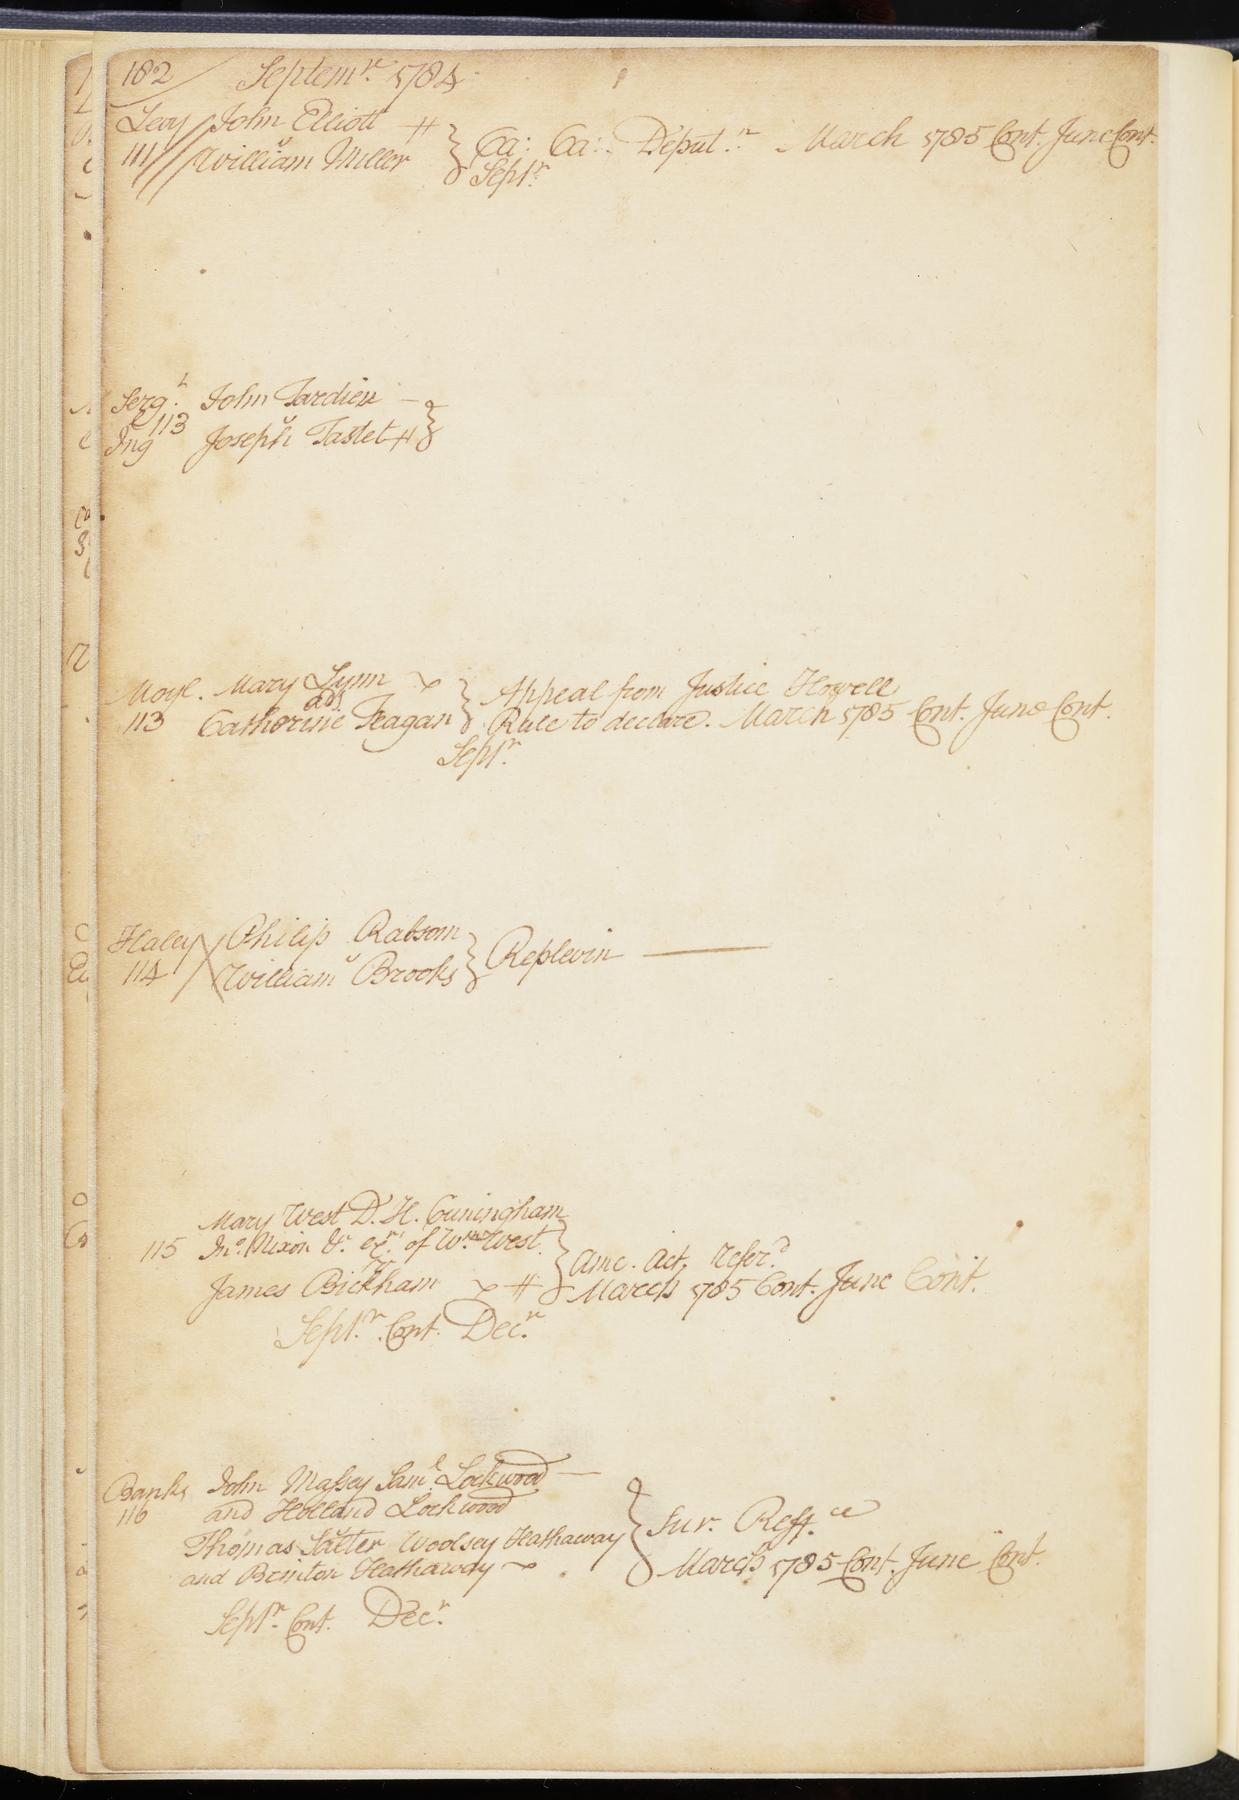 182 Septemr. 1784
Levy John Elliott
111 v William Miller } Ca: Ca: Deput.n March 1785 Cont. June Cont.
Septr.
Serg.t John Tardieu
& 113 v
Ing Joseph Tastet
Moyl. Mary Lynn } Appeal from Justice Howell
ads
113 Catherine Feagan } Rule to declare. March 1785 Cont. June Cont.
Septr.
Haley Philip Rabsom } Replevin
114 v William Brooks
Mary West D. H. Cuningham
115 Jno. Nixon &c. exrs. of Wm. West } Amc. Act. Refer'd
v
James Bickham March 1785 Cont. June Cont.
Septr. Cont. Decr.
Banks John Massey Saml. Lockwood
116 and Holland Lockwood } Sur. Reff.ce
v
Thomas Salter Woolsey Hathaway
and Brinton Hathaway March 1785 Cont. June Cont.
Septr. Cont. Decr.